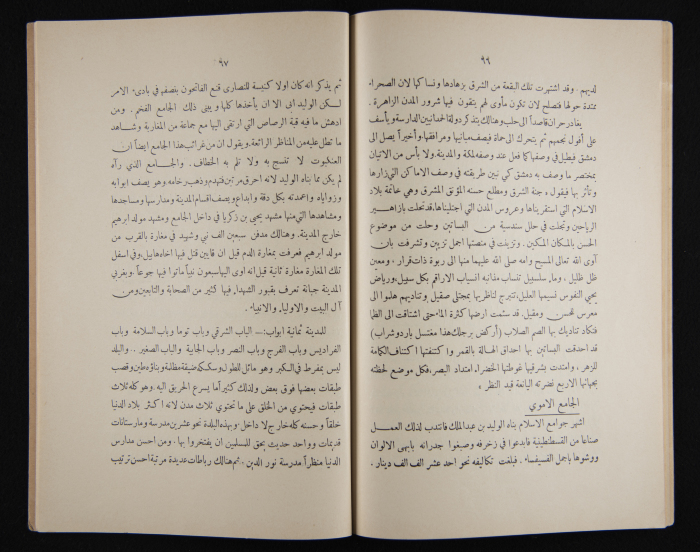 ٩٦
لديهم . وقد اشتهرت تلك البقعة من الشرق بزهادها ونساكها لان الصحراء
ممتدة حولها فتصلح لان تكون مأوى لهم يتقون فيها شرور المدن الزاهرة .
يغادر حران قاصداً الى حلب وهنالك يتذكر دولة الحمدانيين الدارسة ويأسف
على أفول نجمهم ثم يتحرك الى حماة فيصف مبانيها ومرافقها وأخيراً يصل الى
دمشق فيطيل في وصفها كما فعل عند وصفه لمكة والمدينة. ولا بأس من الاتيان
بمختصر ما وصف به دمشق كي نبين طريقته في وصف الاماكن التي زارها
وتأثر بها فيقول « جنة الشرق ومطلع حسنه المؤنق المشرق وهي خاتمة بلاد
الاسلام التي استقريناها وعروس المدن التي اجتليناها، قد تحلت بازاهير
الرياحين وتجلت في حلل سندسية من البساتين وحلت من موضوع
الحسن بالمكان المكين. وتزينت في منصتها اجمل تزيين وتشرفت بان
آوى الله تعالى المسيح وامه صلى الله عليهما منها الى ربوة ذات قرار ومعين
ظل ظليل ، وماء سلسبيل تنساب مذانبه انسياب الاراقم بكل سبيل، ورياض
يحيي النفوس نسيمها العليل، تتبرج لناظريها بمجتلى صقيل وتناديهم هلموا الى
معرس للحسن ومقيل. قد سئمت ارضها كثرة الماء حتى اشتاقت الى الظمأ
فتكاد تناديك بها الصم الصلاب (أركض برجلك هذا مغتسل بارد وشراب)
قد احدقت البساتين بها احداق الهالة بالقمر واكتنفتها اكتناف الكمامة
للزهر ، وامتدت بشرقيها غوطتها الخضراء امتداد البصر، فكل موضع لحظته
بجهاتها الاربع نضرته اليانعة قيد النظر »
الجامع الاموي
اشهر جوامع الاسلام بناه الوليد بن عبد الملك فانتدب لذلك العمل
صناعا من القسطنطينية فابدعوا في زخرفه وصبغوا جدرانه بابهى الالوان
ووشوها باجمل الفسيفساء . فبلغت تكاليفه نحو احد عشر الف الف دينار .
٩٧
ثم يذكر انه كان اولا كنيسة للنصارى قنع الفاتحون بنصفها في بادىء الامر
لكن الوليد ابى الا ان يأخذها كلها ويبنى ذلك الجامع الفخم . ومن
ادهش ما فيه قبة الرصاص التي ارتقى اليها مع جماعة من المغاربة وشاهد
ما تطل عليه من المناظر الرائعة. ويقول ان من غرائب هذا الجامع ايضاً ان
العنكبوت لا تنسج به ولا تلم به الخطاف . والجامع الذي رآه
لم يكن مما بناه الوليد لانه احرق مرتين فتهدم وذهب رخامه وهو يصف ابوابه
وزواياه واعمدته بكل دقة وابداع ويصف اقسام المدينة ومدارسها ومساجدها
ومشاهدها التي منها مشهد يحيى بن زكريا في داخل الجامع ومشهد مولد ابرهيم
خارج المدينة. وهنالك مدفن سبعين الف نبي وشهيد في مغارة بالقرب من
مولد ابرهيم فعرفت بمغارة الدم قيل ان قابين قتل فيها اخاه هابيل، وفي اسفل
تلك المغارة مغارة ثانية قيل انه اوى اليها سبعون نبياً ماتوا فيها جوعاً. وبغربي
المدينة جبانة تعرف بقبور الشهداء فيها كثير من الصحابة والتابعين ومن
آل البيت والاولياء والانبياء.
للمدينة ثمانية ابواب :— الباب الشرقي وباب توما وباب السلامة وباب
الفراديس وباب الفرج وباب النصر وباب الجابية والباب الصغير . والبلد
ليس بمفرط في الكبر وهو مائل للطول وسككه ضيقة مظلمة وبناؤه طين وقصب
طبقات بعضها فوق بعض ولذلك كثيراً ما يسرع الحريق اليه. وهو كله ثلاث
طبقات فيحتوي من الخلق على ما تحتوي ثلاث مدن لانه اكثر بلاد الدنيا
خلقاً وحسنه كله خارج لا داخل. وبهذه البلدة نحو عشرين مدرسة ومارستانات
قديمات وواحد حديث يحق للمسلمين ان يفتخروا بها . ومن احسن مدارس
الدنيا منظراً مدرسة نور الدين . ثم هنالك رباطات عديدة مرتبة احسن ترتيب